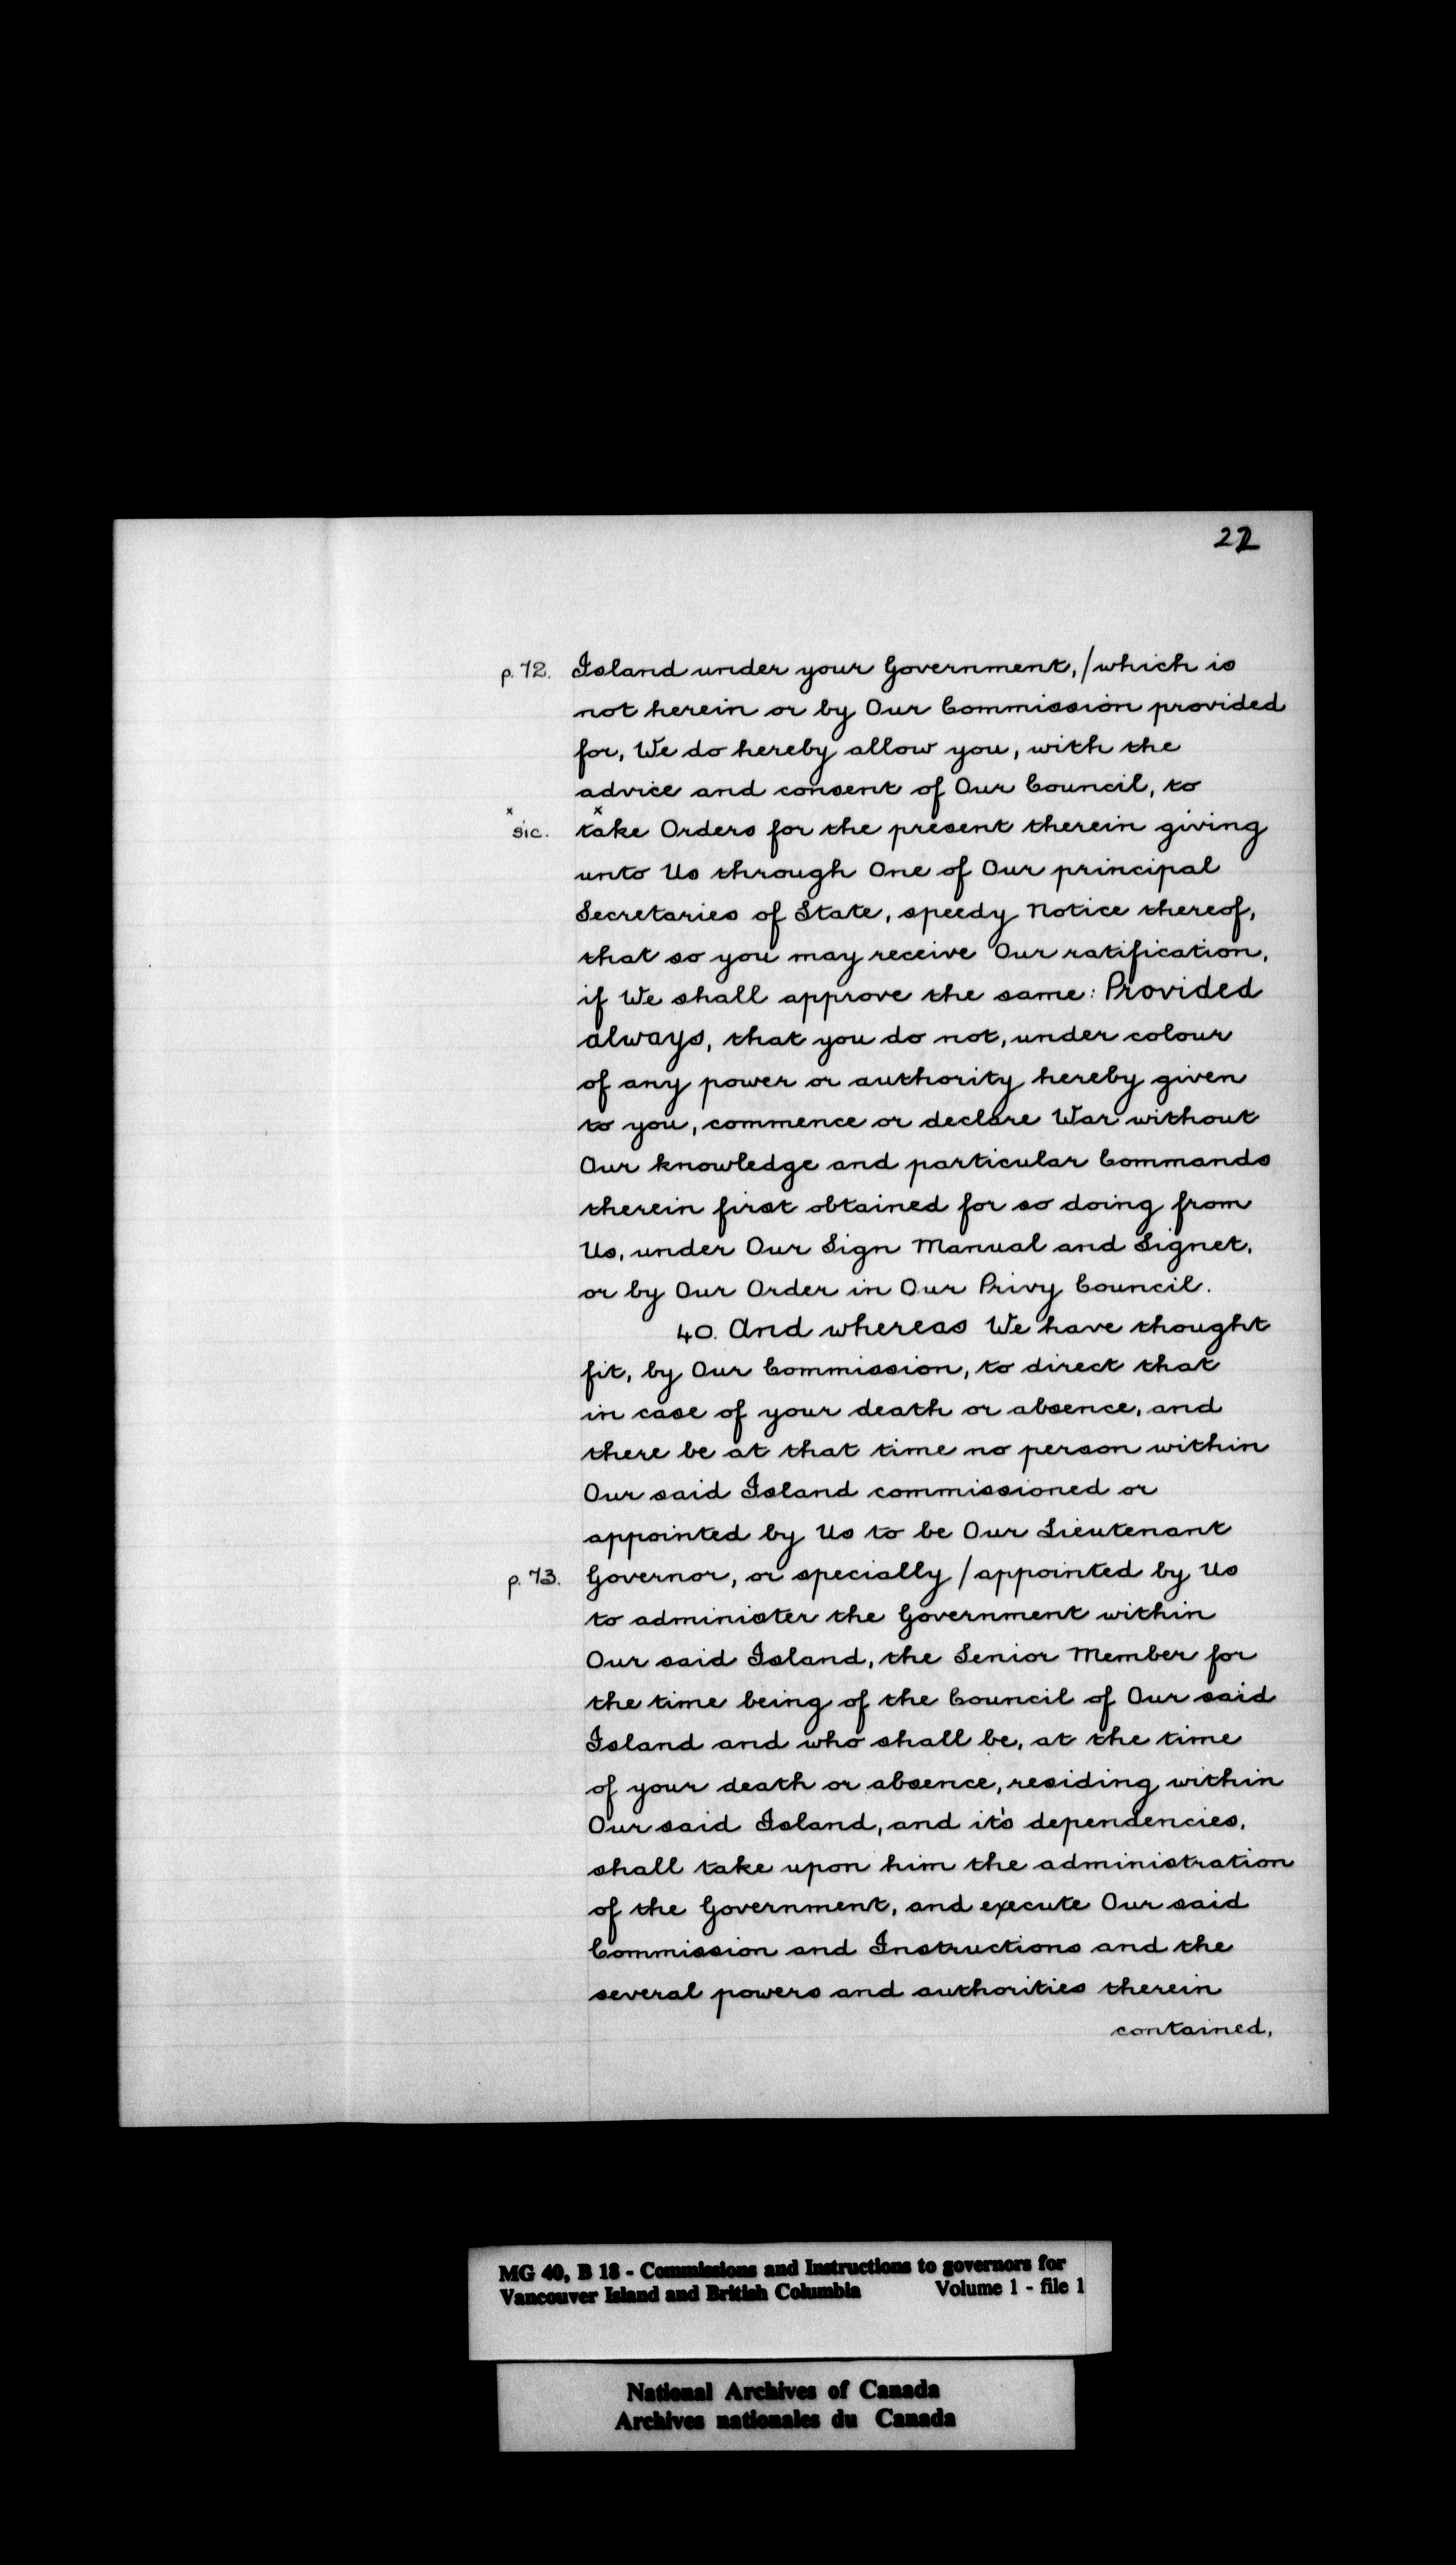 22
p. 72. Island under your Government, / which is
not herein or by Our Commission provided
for, We do hereby allow you, with the
advice and consent of Our Council, to
x sic. x take Orders for the present therein giving
unto Us through One of Our principal
Secretaries of State, speedy Notice thereof,
that so you may receive Our ratification,
if We shall approve the same: Provided
always, that you do not, under colour
of any power or authority hereby given
to you, commence or declare War without
Our knowledge and particular Commands
therein first obtained for so doing from
Us, under Our Sign Manual and Signet,
or by Our Order in Our Privy Council.
40. And whereas We have thought
fit, by Our Commission, to direct that
in case of your death or absence, and
there be at that time no person within
Our said Island commissioned or
appointed by Us to be Our Lieutenant
p. 73. Governor, or specially / appointed by Us
to administer the Government within
Our said Island, the Senior Member for
the time being of the Council of Our said
Island and who shall be, at the time
of your death or absence, residing within
Our said Island, and it's dependencies,
shall take upon him the administration
of the Government, and execute Our said
Commission and Instructions and the
several powers and authorities therein
contained,
MG 40, B 18 - Commissions and Instructions to governors for
Vancouver Island and British Columbia Volume 1 - file 1
National Archives of Canada
Archives nationales du Canada